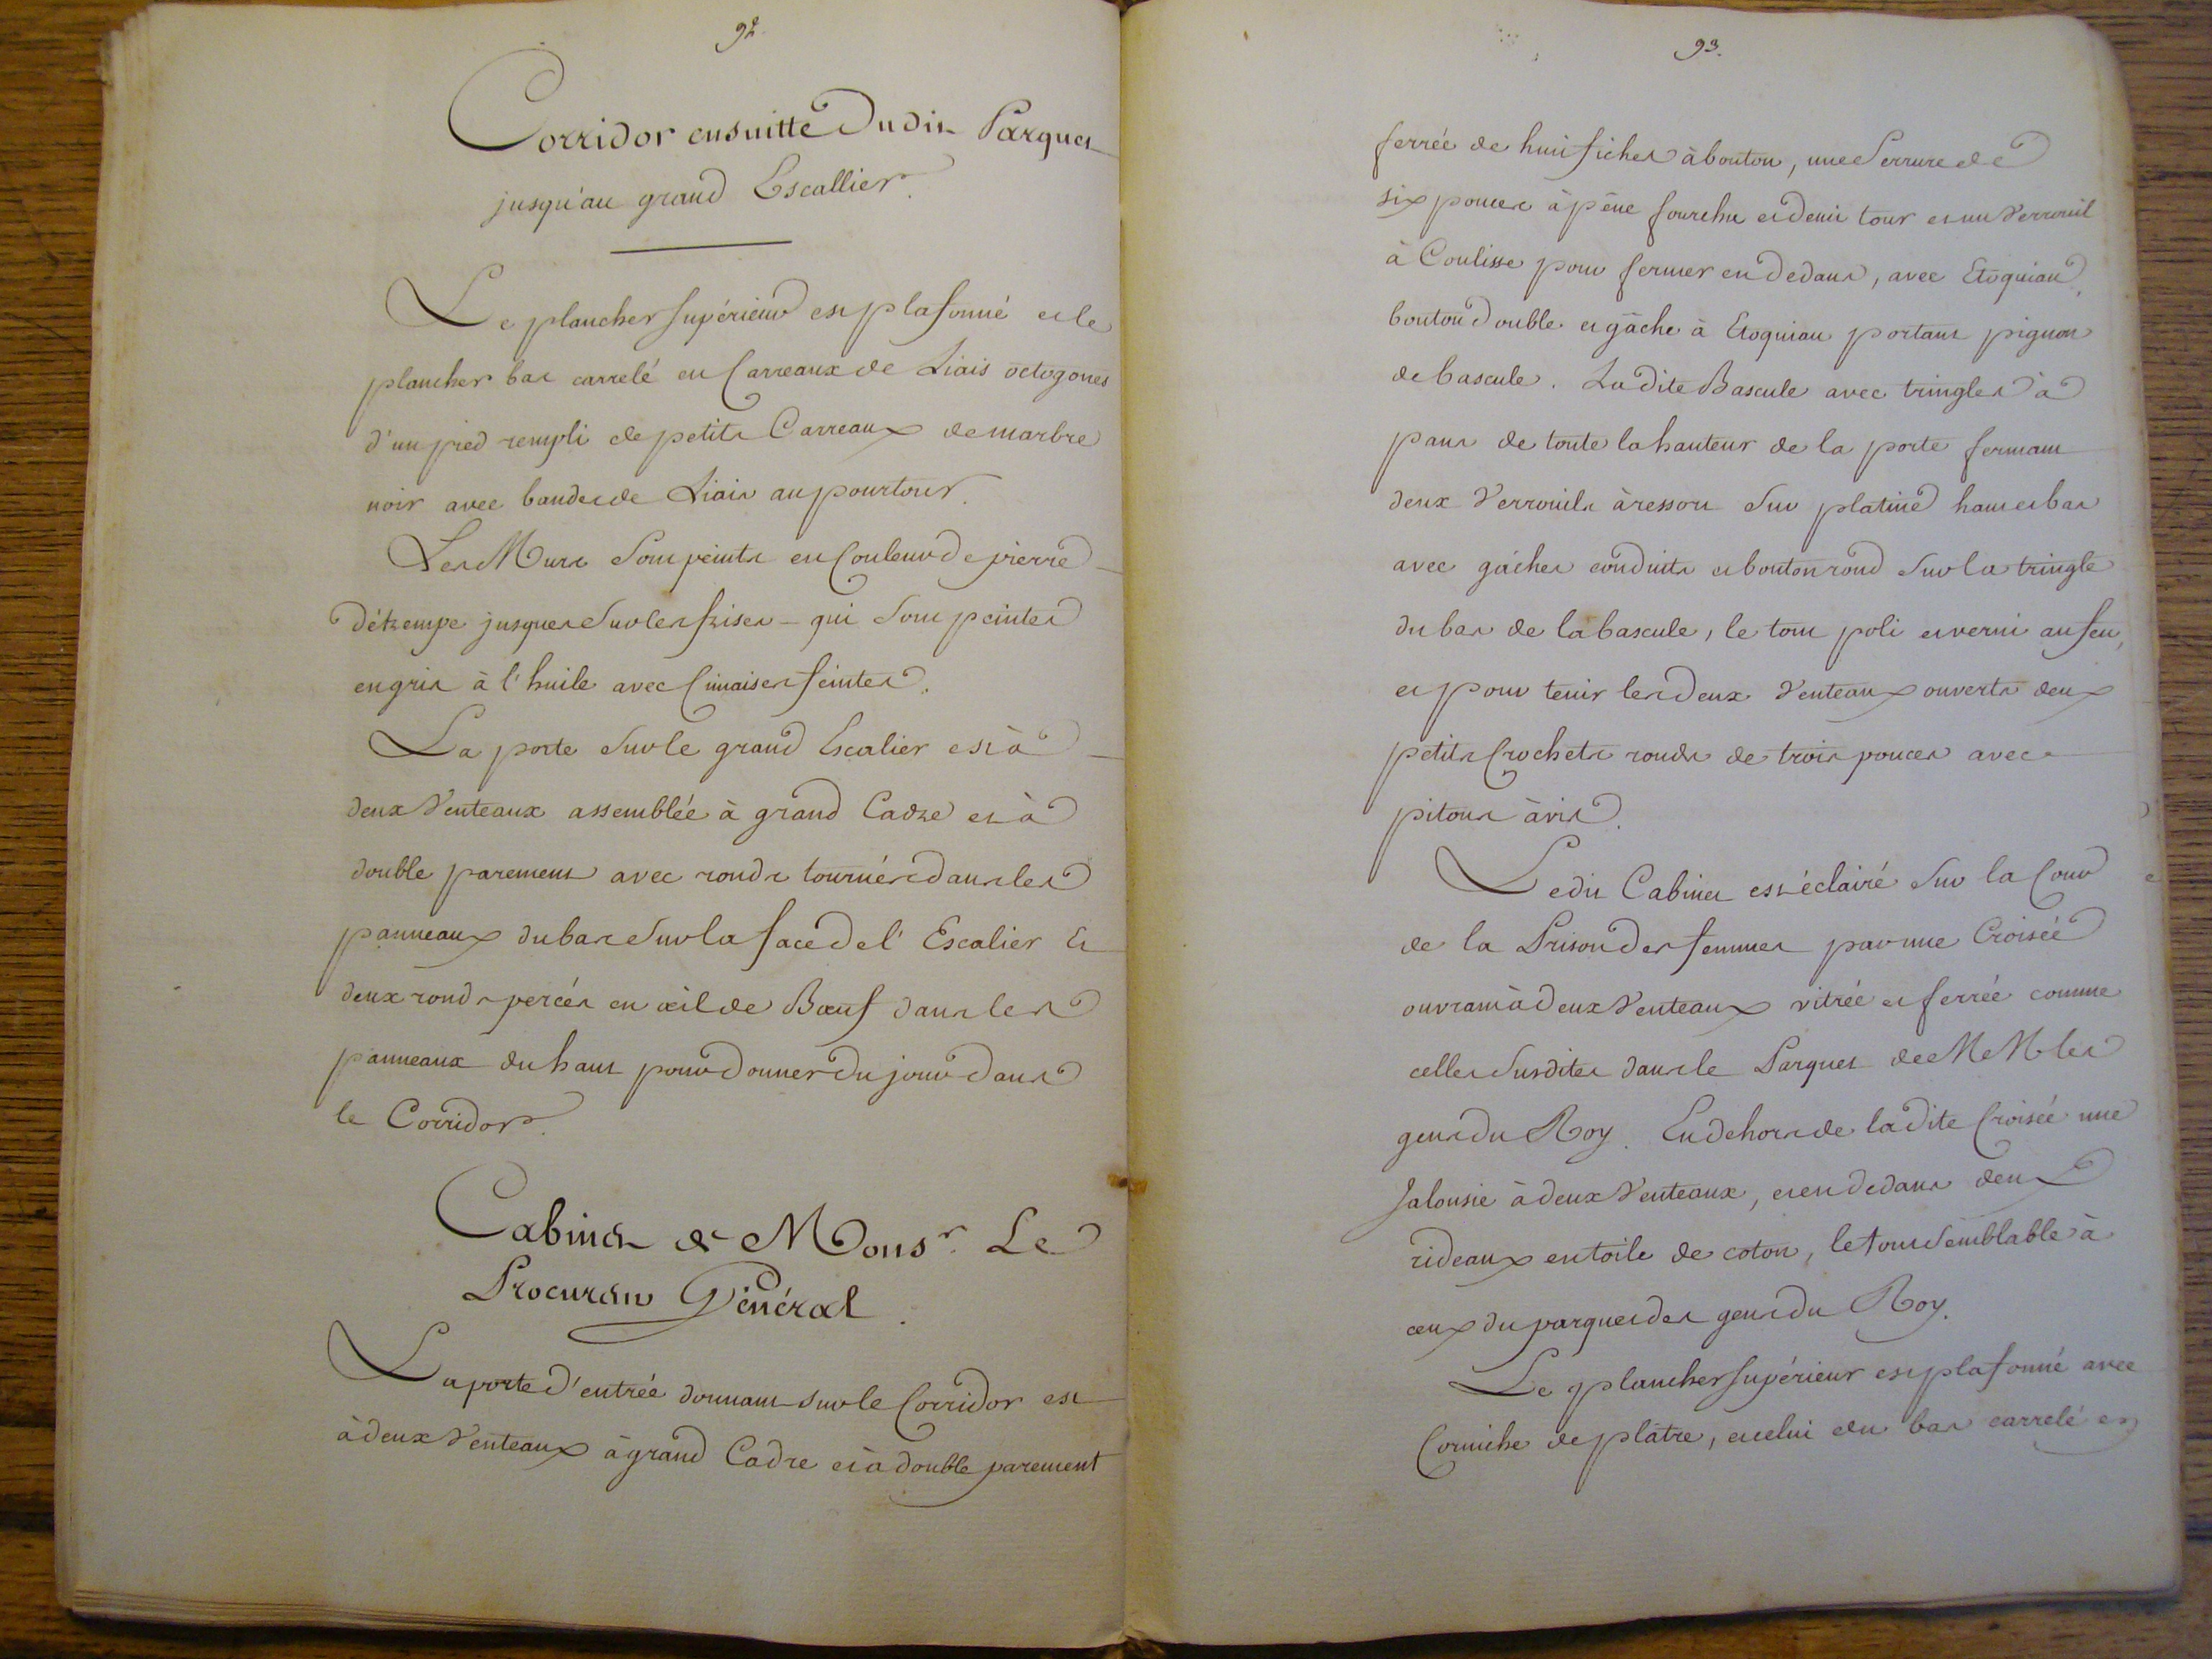 92.
Corridor ensuitte Dudit Parquet
jusqu'au grand Escallier.
Le plancher Supérieur est plafonné et le
plancher bas carrelé en Carreaux de Liais octogones
d'un pied rempli de petits Carreaux de marbre
noir avec bandes de Liais au pourtour.
Les Murs Sont peints en Couleur de pierre
détrempe jusques Sur les frises - qui Sont peintes
en gris à l'huile avec Cimaises feintes.
La porte Sur le grand Escalier est à
deux Venteaux assemblée à grand Cadre et à
double parement avec ronds tournés dans les
panneaux du bas Sur la face de l'Escalier Et
deux ronds percés en œil de Bœuf dans les
panneaux du haut pour donner du jour dans
le Corridor.
Cabinet de Monsr. Le
Procureur Général.
La porte d'entrée donnant Sur le Corridor est
à deux Venteaux à grand Cadre et à double parement
93.
ferrée de huit fiches à bouton, une Serrure de
six pouces à pêne fourchu et demi tour et un Verrouil
à Coulisse pour fermer en dedans, avec Etoquiau,
bouton double et gâche à Etoquiau portant pignon
de bascule. La dite Bascule avec tringles à
pans de toute la hauteur de la porte fermant
deux Verrouils à ressort Sur platine haut et bas
avec gâches conduits et bouton rond Sur la tringle
du bas de la bascule, le tout poli et verni au feu,
et pour tenir les deux Venteaux ouverts deux
petits Crochets ronds de trois pouces avec
pitons à vis.
Le dit Cabinet est éclairé Sur la Cour
de la Prison des femmes par une Croisée
ouvrant à deux Venteaux vitrée et ferrée comme
celles Susdites dans le Parquet de M M les
gens du Roy. En dehors de la dite Croisée une
Jalousie à deux Venteaux, et en dedans deux
rideaux en toile de coton, le tout Semblable à
ceux du parquet des gens du Roy.
Le plancher Supérieur est plafonné avec
Corniche de plâtre, et celui du bas carrelé en